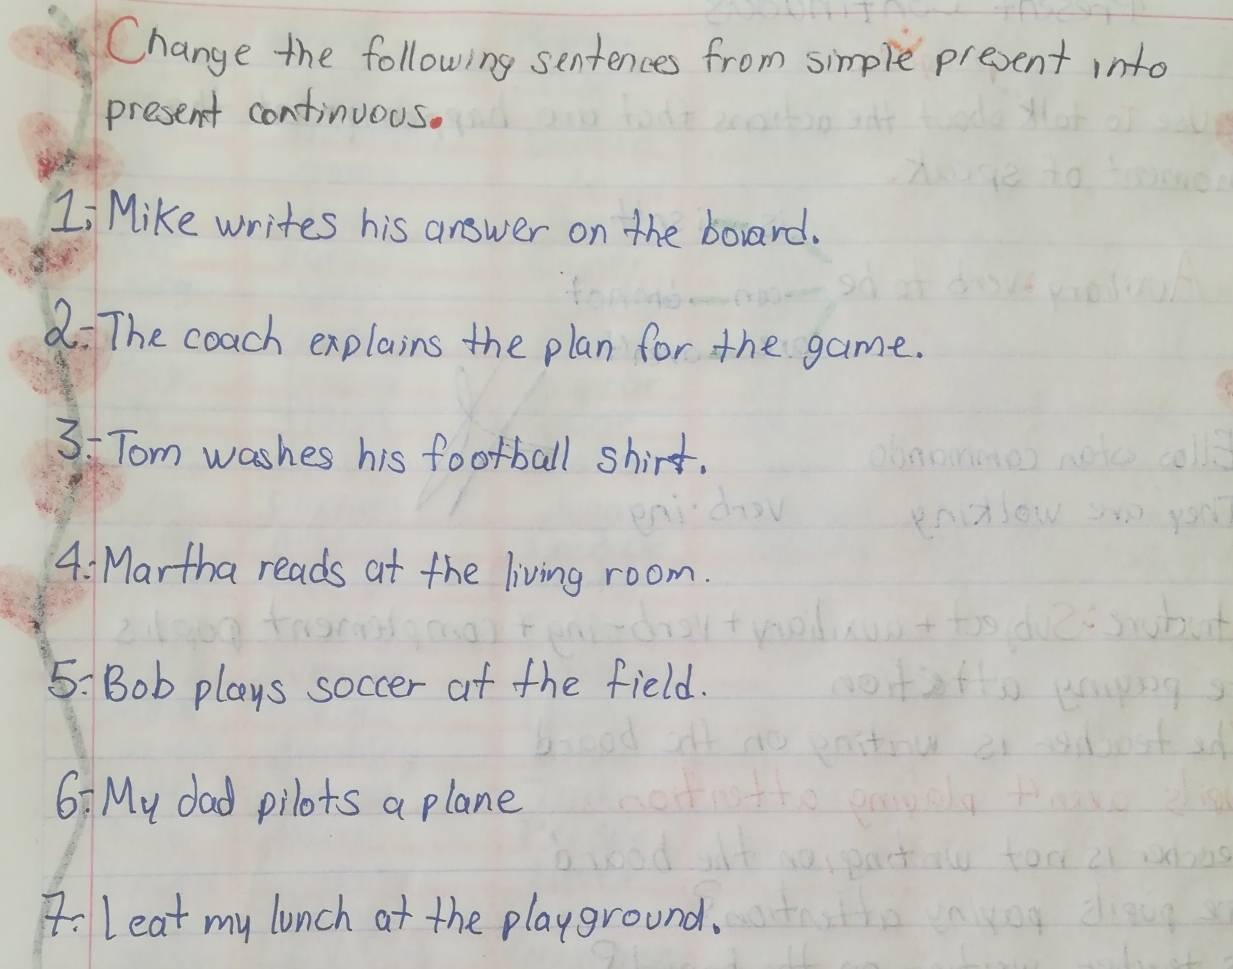 Change the following sentences from simple present into
present continuous.
1.- Mike writes his answer on the board.
2.- The coach explains the plan for the game.
3.- Tom washes his football shirt.
4.- Martha reads at the living room.
5.- Bob plays soccer at the field.
6.- My dad pilots a plane
7.- I eat my lunch at the playground.